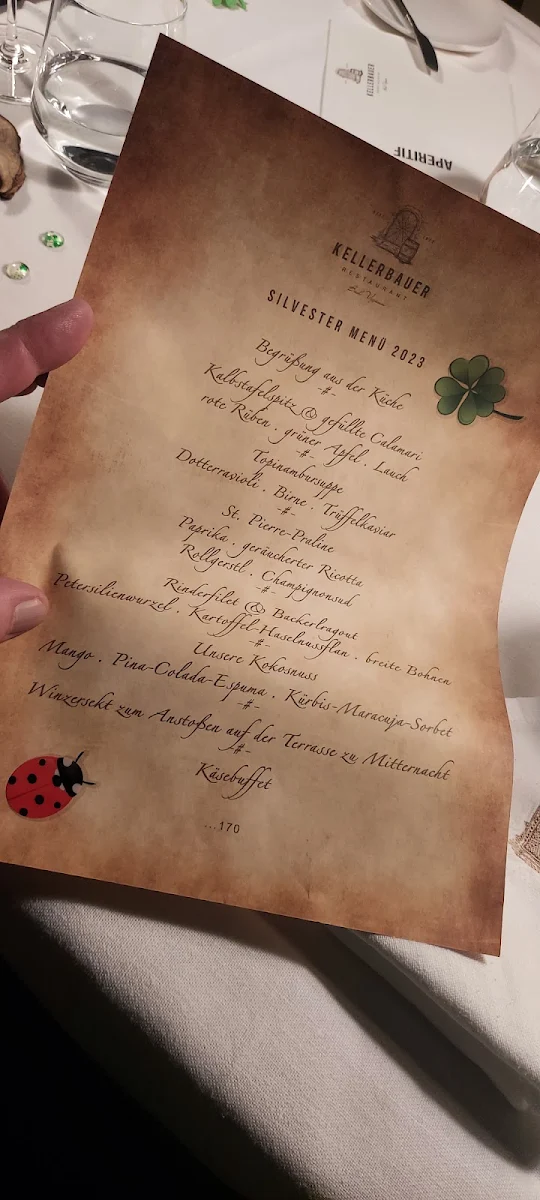 KELLERBAUER
APERITIF
KELLERBAUER
RESTAURANT
SILVESTER MENÜ 2023
Begrüßung aus der Küche
-#-
Kalbstafelspitz & gefüllte Calamari
rote Rüben . grüner Apfel . Lauch
-#-
Topinambursuppe
Dotterravioli . Birne . Trüffelkaviar
-#-
St. Pierre-Praline
Paprika . geräucherter Ricotta
Rollgerstl . Champignonsud
-#-
Rinderfilet & Backerlragout
Petersilienwurzel . Kartoffel-Haselnussflan . breite Bohnen
-#-
Unsere Kokosnuss
Mango . Pina-Colada-Espuma . Kürbis-Maracuja-Sorbet
-#-
Winzersekt zum Anstoßen auf der Terrasse zu Mitternacht
-#-
Käsebuffet
...170